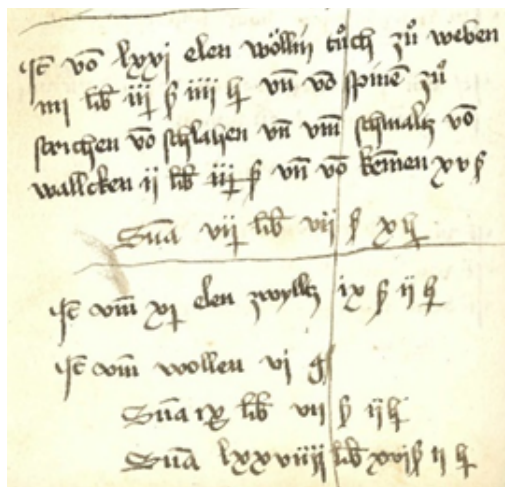 Ite vo lxxi elen wöllin tůch zů weben
iiii lib iij ß iiii hl vn vo spinē zů
strichen vō schlahen vn vm schmaltz vō
wallcken ii lib iij ß vn vō kemen xv ß
Sūa vij lib vij ß x hl
Ite vm xj elen zwylltz ix ß ij hl
Ite vm wollen vi g
Sūa ix lib vij ß ij hl
Sūa lxxviiij lib xviß ii hl